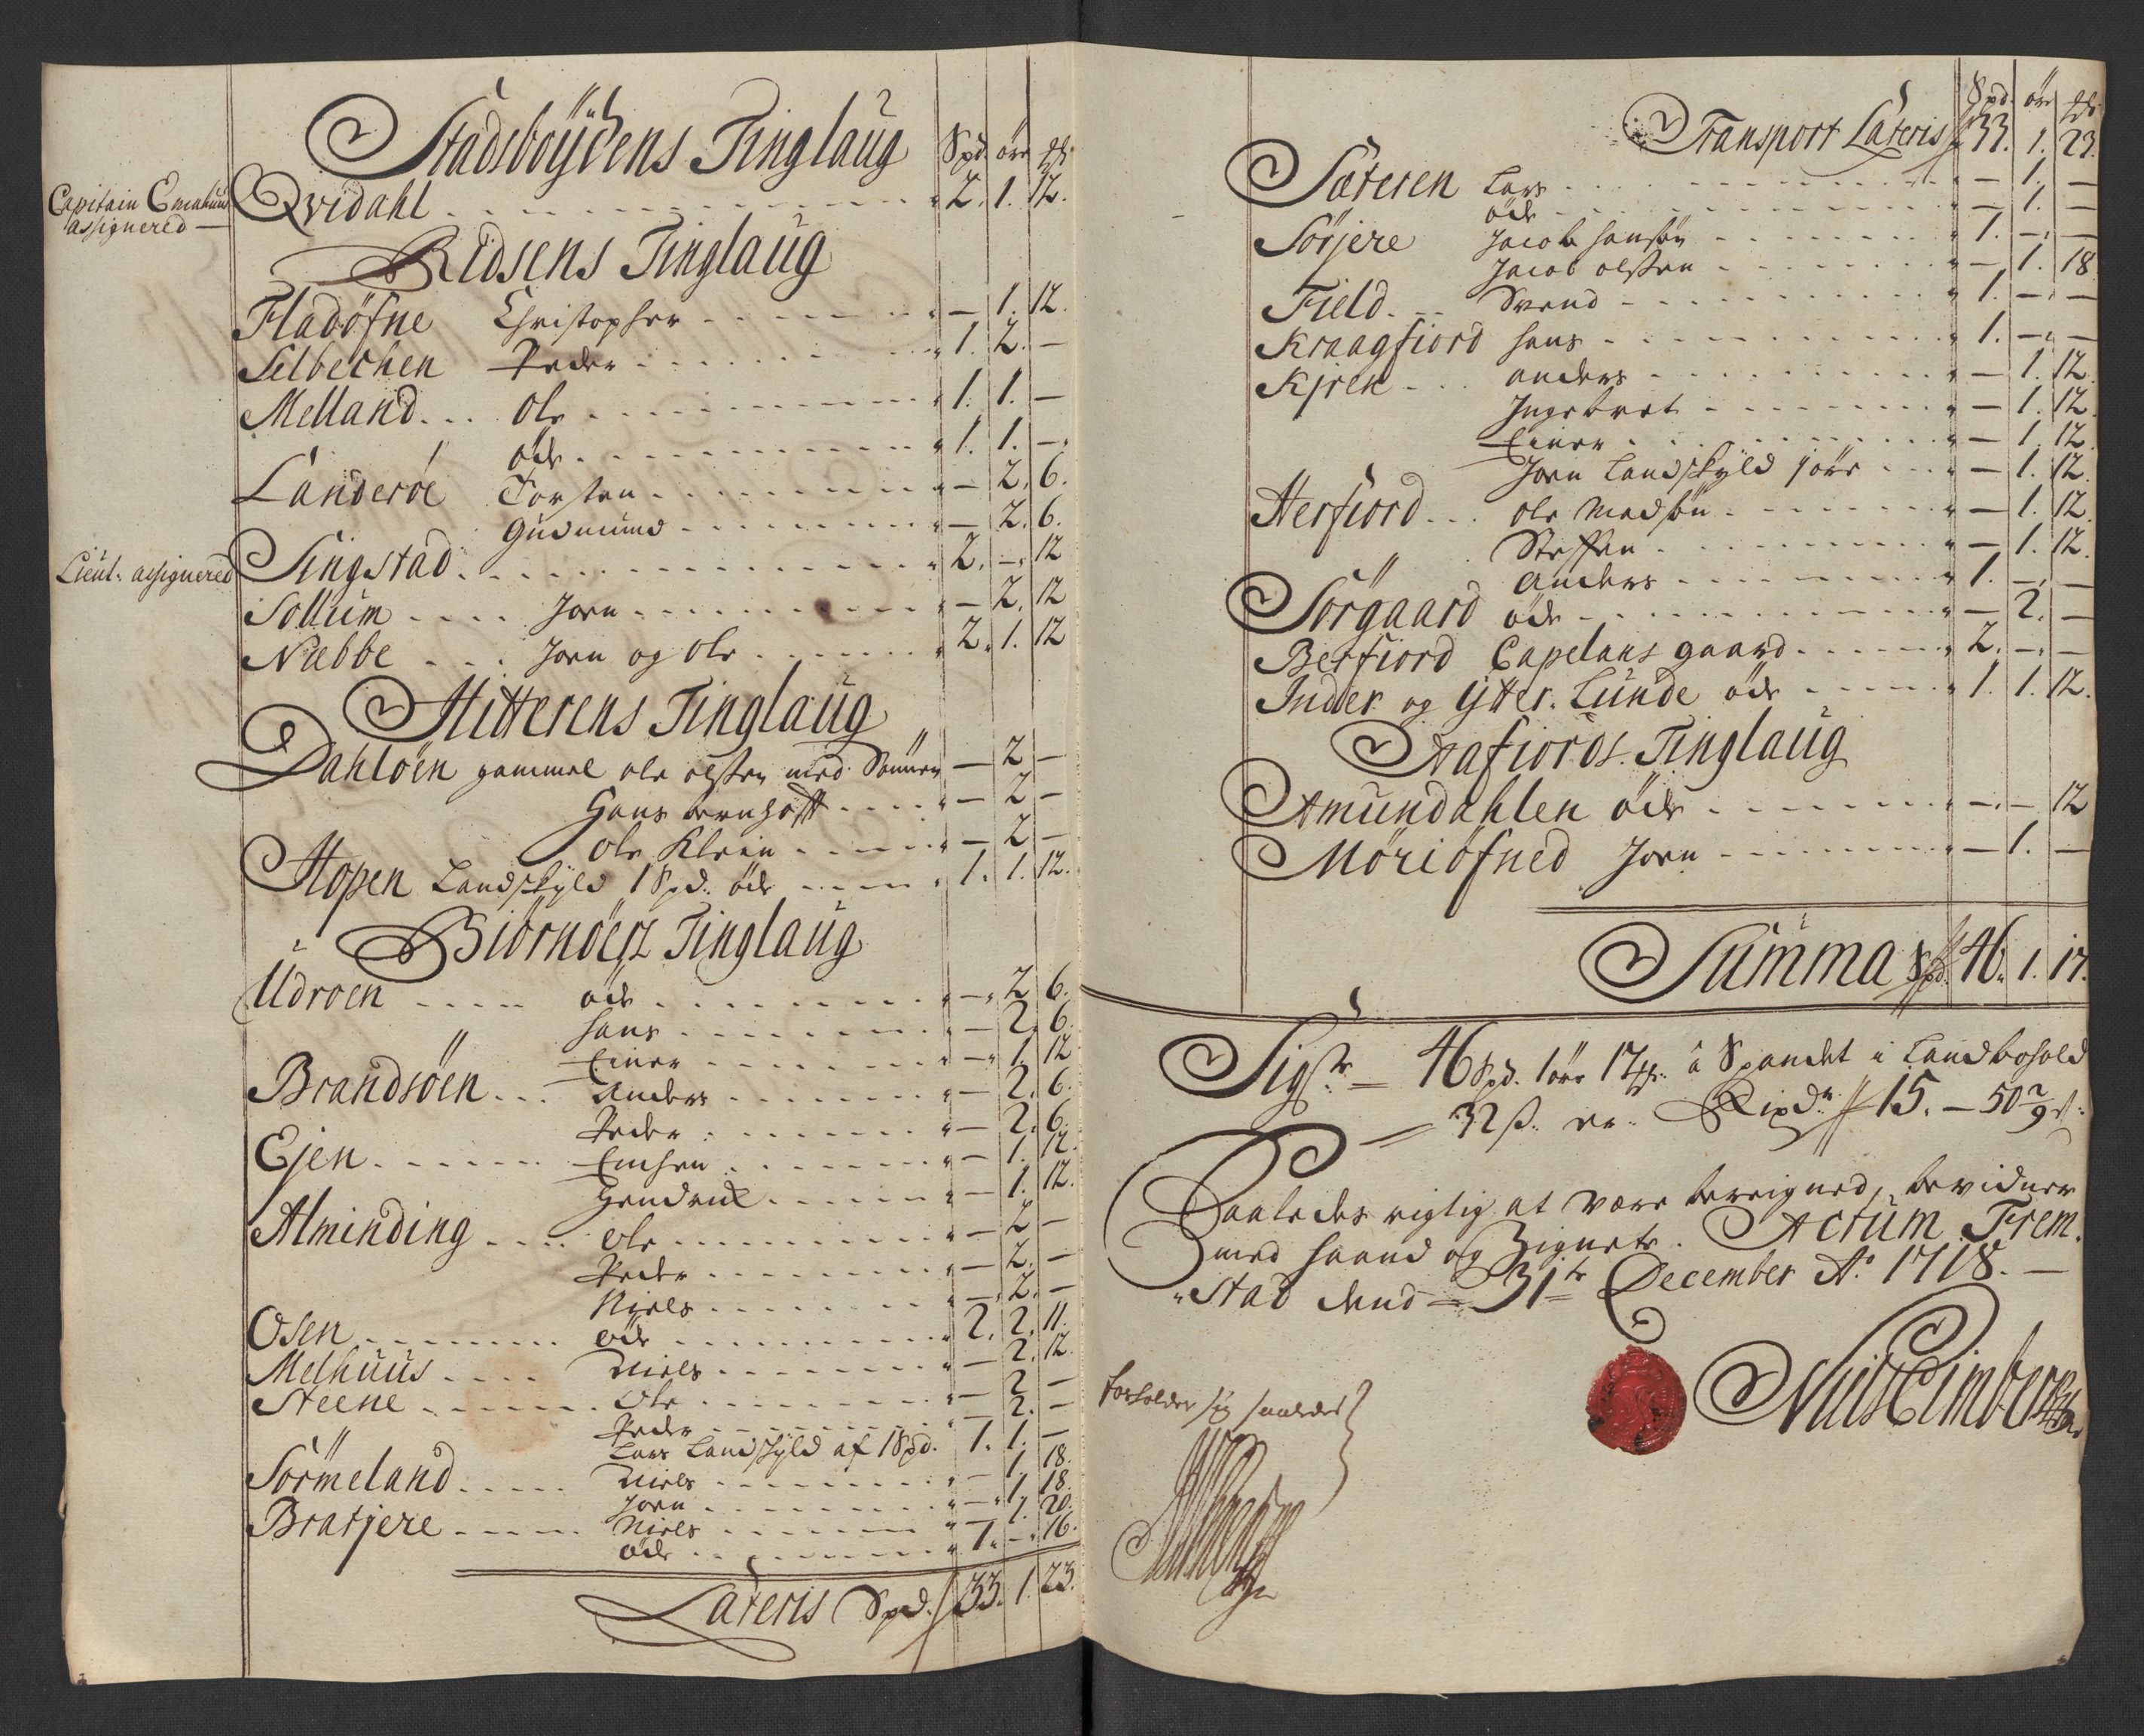 Stadsboÿdens Tinglaug Spd. öre
Capitain
assignered
Qvidahl 2. 1. 12.
Ridsens Tinglaug
Fladöfne Christopher – 1. 12.
Selbechen Peder 1. 2. –
Melland Ole 1. 1. –
öde 1. 1. –
Landeröe Torsten – 2. 6.
Gudmund – 2. 6.
Lieut: assignered
Singstad 2. – 12
Sollum Joen – 2. 12
Næbbe Joen og Ole 2. 1. 12
Hitterens Tinglaug
Dahlöen gammel ole olsten med Sönnen – 2 –
Hans bernhoft – 2 –
Ole Klein – 2 –
Hopen Landskyld 1 Spd. öde 1. 1. 12.
Biörnöers Tinglaug
Udroen öde – 2 6.
Hans – 2. 6
Einer – 1. 12
Brandsöen Anders – 2. 6.
Peder – 2. 6.
Ejen – 1. 12.
Hendrich – 1. 12.
Alminding Ole – 2 –
Peder – 2. –
Niels – 2. –
Osen öde 2. 2. 11.
Melhuus Niels – 2. 12.
Steene Ole – 2 –
Peder – 2. –
Lars Landskyld af 1 Spd. 1. 1. –
Sörmeland Niels – 1. 18.
Joen – 1. 18.
Bratjere Niels – 1. 20.
öde 1. – 16.
Lateris Spd. 33. 1. 23.
Spd. öre
Transport Lateris 33. 1. 23.
Sæteren Lars – 1. –
öde – 1. –
Sörjere Jacob Hansön 1. – –
Jacob olsten – 1. 18
Field Svend 1. – –
Kraagfiord Hans 1. – –
Kjren Anders – 1. 12
Ingebret – 1. 12.
Einer – 1. 12
Joen Landskyld 1 öre – 1. 12.
Herfiord Ole Madsön – 1. 12.
Steffen – 1. 12.
Anders 1. – –
Sörgaard öde – 2. –
Berfiord Capelans gaard 2. – –
Inder og Ytter Lunde öde 1. 1. 12.
Aafiords Tinglaug
Amundahlen öde – – 12
Möriöfned Joen – 1. –
Summa Spd. 46. 1. 17.
Sigr = 46 Spd. 1 öre 17 à Spandet i Landbohold
= 32 ß. er. Rixdr 15. – 50 2/9 ß:
Saaledes rigtig at være bereigned, bevidner
med haand og Zignete. Actum Frem-
stad dend = 31te December Ao. 1718. –
forholder sig saaledes